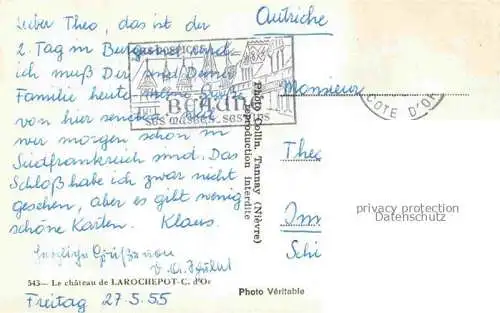 Lieber Theo, das ist der
2. Tag in Burgund und
ich muß Dir und Deiner
Familie heute meine Grüße
von hier senden, weil
wir morgen schon in
Südfrankreich sind. Das
Schloß habe ich zwar nicht
gesehen, aber es gibt wenig
schöne Karten. Klaus.
herzliche Grüße von
543 - Le château de LAROCHEPOT-C. d'Or
Freitag 27.5.55
BEAUNE
SES MUSÉES, SES VINS
COTE D'OR
Photo Collin, Tannay (Nièvre)
reproduction interdite
Photo Véritable
Autriche
Monsieur
Theo
Im
Schi
privacy protection
Datenschutz